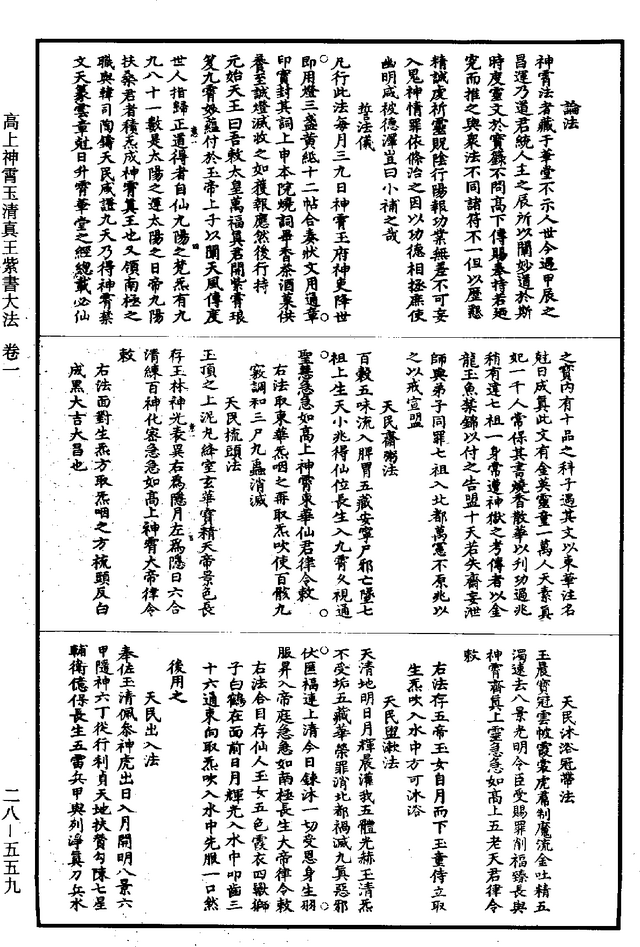 論法
神霄法者藏于華堂不示人世今遇甲辰之
昌運乃道君統人主之辰所以闡妙道於斯
時度靈文於寶籙不問高下傳賜奉持若廼
究而推之與衆法不同諸符不一但以歷懇
精誠虔祈靈貺陰行陽報功業無差不可妄
入鬼神情罪依條治之因以功德相拯庶使
幽明咸被德澤豈曰小補之哉
誓法儀
凡行此法每月三九日神霄玉府神吏降世
即用燈三盞黃紙十二帖合奏狀文用通章
印實封其詞上申本院燒詞畢香茶酒菓供
養至誠燈滅收之如獲報應然後行持
元始天王曰吾敕太皇萬福真君開紫霄琅
笈九霄妙蘊付於玉帝上子以闡天風傳度
世人指歸正道得者自仙九陽之梵炁有九
九八十一數是太陽之運太陽之日帝九陽
扶桑君者積炁成神霄真王也又領南極之
職與韓司陶鑄天民咸證九天乃得神霄禁
文天篆雲章尅日升霄華堂之經總載必仙
之寶內有十品之科子遇其文以東華注名
尅日成真此文有金英靈童一萬人天素真
妃一千人常侍其書燒香散華以列功過兆
稍有違七祖一身常遭神獄之考傳者以金
龍玉魚紫錦以付之告盟十天若失齋妄泄
師與弟子同罪七祖入北都萬寃不原兆以
之以戒宣盟
天民齋粥法
百穀五味流入脾胃五藏安寧尸邪亡墜七
祖上生天小兆得仙位長生入九霄久視通
聖慧急急如高上神霄東華仙君律令敕
右法取東華炁咽之再取炁吹使百骸九
竅調和三尸九蟲消滅
天民梳頭法
玉頂之上泥丸絳室玄華寶精天帝景色長
存玉林神光表異右爲隱月左爲隱日六合
清練百神化密急急如高上神霄大帝律令
敕
右法面對生炁方取炁咽之方梳頭反白
成黑大吉大昌也
天民沐浴冠帶法
玉晨寶冠雲帔霞裳虎屬制魔流金吐精五
濁速去八景光明令臣受賜罪削福臻長與
神霄齋真上靈急急如高上五老天君律令
敕
右法存五帝玉女自月而下玉童侍立取
生炁吹入水中方可沐浴
天民盥漱法
天清地明日月輝晨漢我五體光赫玉清炁
不受垢五藏華榮罪消北都禍滅九真惡邪
伏匿福連上清今日鍊沐一切受恩身生羽
服昇入帝庭急急如南極長生大帝律令敕
右法合目存仙人玉女五色霞衣四獄獅
子白鶴在面前日月輝光入水中叩齒三
十六通東向取炁吹入水中先服一口然
後用之
天民出入法
奉佐玉清佩泰神虎出日入月開明八景六
甲隨神六丁從行利貞天地扶贊勾陳七星
輔衛億保長生五雷兵甲與列淨真刀兵水
高上神霄玉清真王紫書大法　卷一
二八—五五九